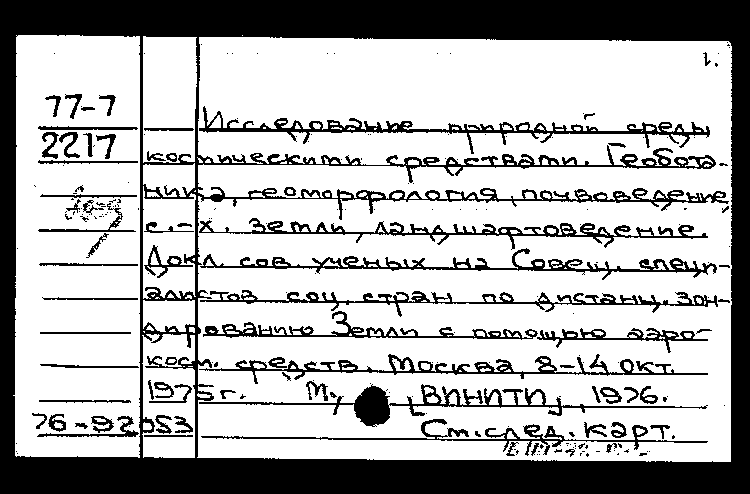 1.
77-7
2217
Исследование природной среды
космическими средствами. Геобота-
ника, геоморфология, почвоведение,
с.-х. земли, ландшафтоведение.
Докл. сов. ученых на Совещ. специ-
алистов соц. стран по дистанц. зон-
дированию Земли с помощью аэро-
косм. средств. Москва, 8-14 окт.
1975г. М., [ВИНИТИ], 1976.
76-92053
См. след. карт.